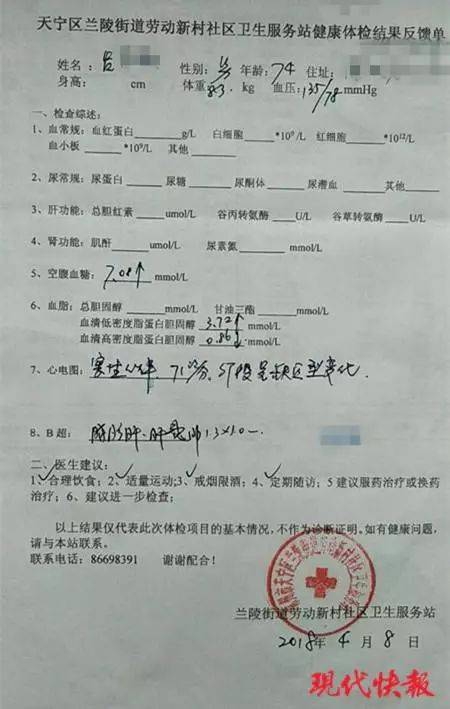 天宁区兰陵街道劳动新村社区卫生服务站健康体检结果反馈单
姓名: 吕 性别: 男 年龄: 74 住址:
身高: cm 体重: 83 kg 血压: 135/78 mmHg
一、检查综述:
1、血常规: 血红蛋白 g/L 白细胞 *10⁹/L 红细胞 *10¹²/L
血小板 *10⁹/L 其他
2、尿常规: 尿蛋白 尿糖 尿酮体 尿潜血 其他
3、肝功能: 总胆红素 umol/L 谷丙转氨酶 U/L 谷草转氨酶 U/L
4、肾功能: 肌酐 umol/L 尿素氮 mmol/L
5、空腹血糖: 7.08↑ mmol/L
6、血脂: 总胆固醇 mmol/L 甘油三酯 mmol/L
血清低密度脂蛋白胆固醇 3.72↑ mmol/L
血清高密度脂蛋白胆固醇 0.86↓ mmol/L
7、心电图: 窦性心律, 71次/分, ST段呈缺区型变化.
8、B超: 脂肪肝. 肝囊肿
二、医生建议:
1、合理饮食; 2、适量运动;3、戒烟限酒; 4、定期随访; 5 建议服药治疗或换药
治疗; 6、建议进一步检查;
以上结果仅代表此次体检项目的基本情况, 不作为诊断证明。如有健康问题,
请与本站联系。
联系电话: 86698391 谢谢配合!
兰陵街道劳动新村社区卫生服务站
2018年 4 月 8 日
现代快報